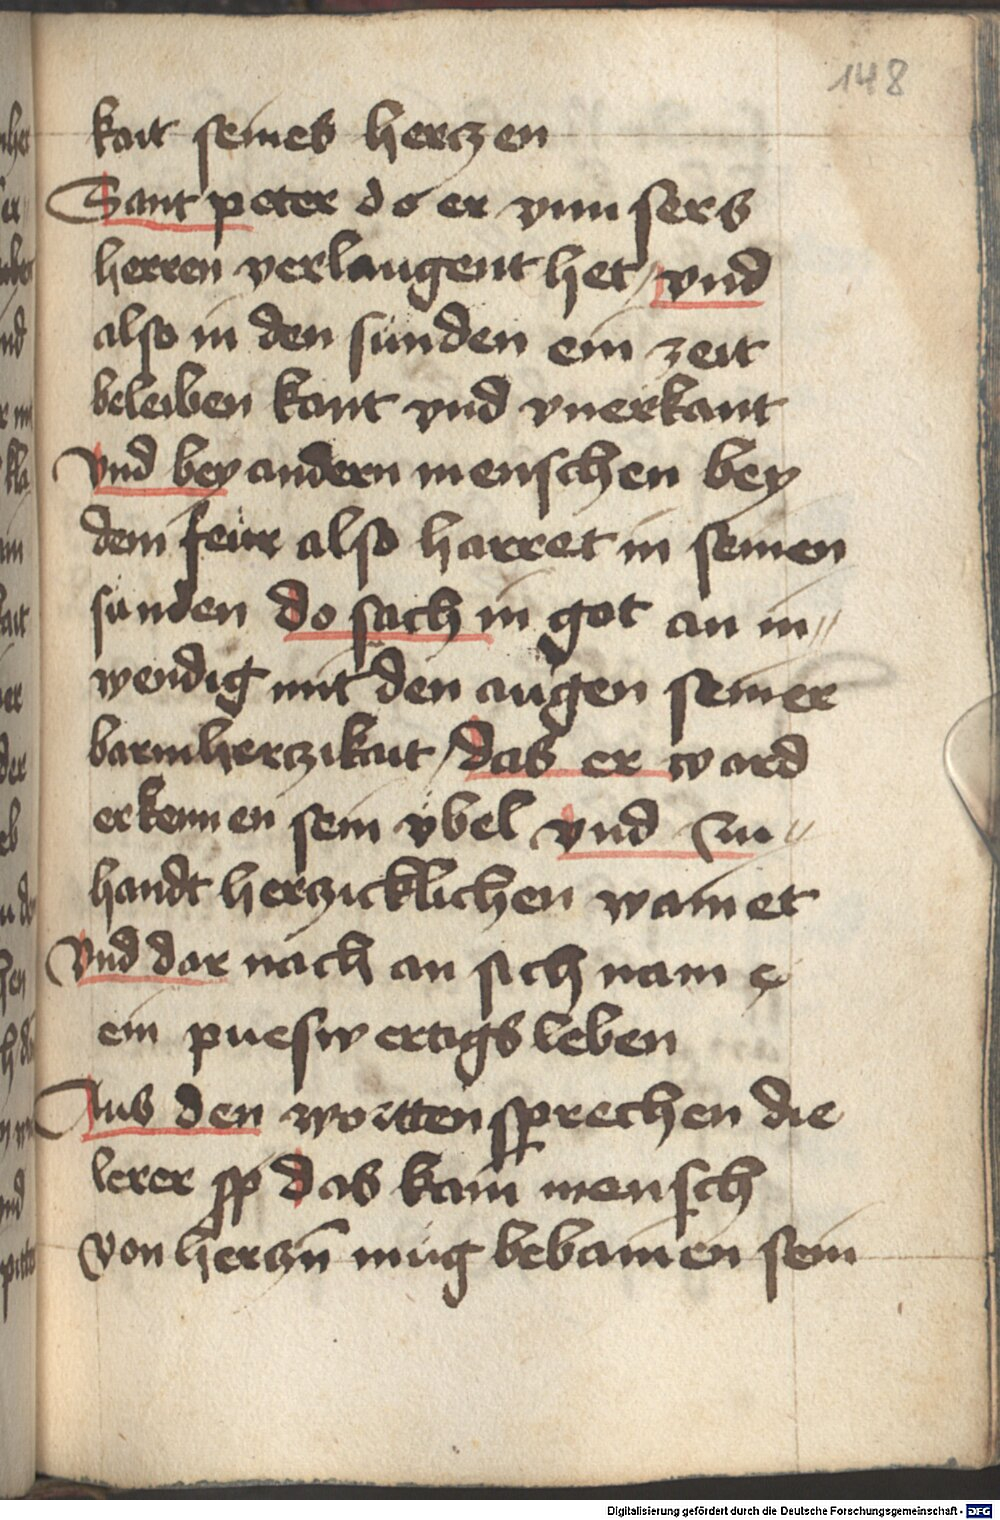 148
kait seines herczen
Sant peter do er vnn sers
herren verlaugent het / vnd
also in den sunden ein zeit
beleiben kant vnd vnerkant
Vnd bey andern menschen bey
dem feür also harret in seinen
sunden do sach in got an in⸗
wendig mit den augen seiner
barmherczikait / das er ward
erkennen sein vbel vnd zu⸗
handt herczicklichen wainet
Vnd dar nach an sich nam e
ein pueswertigs leben
Aus den wortten sprechen die
lerer sp das kain mensch
von herczn̄ müg bebainen sein
Digitalisierung gefördert durch die Deutsche Forschungsgemeinschaft - DFG